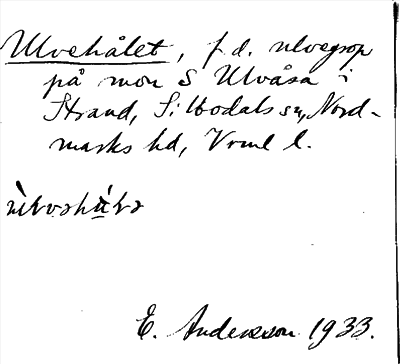 Ulvehålet, f.d. ulvegrop
på mon S Ulvåsa i
Strand, Silbodals sn, Nord-
marks hd, Vrml l.
E. Andersson 1933.